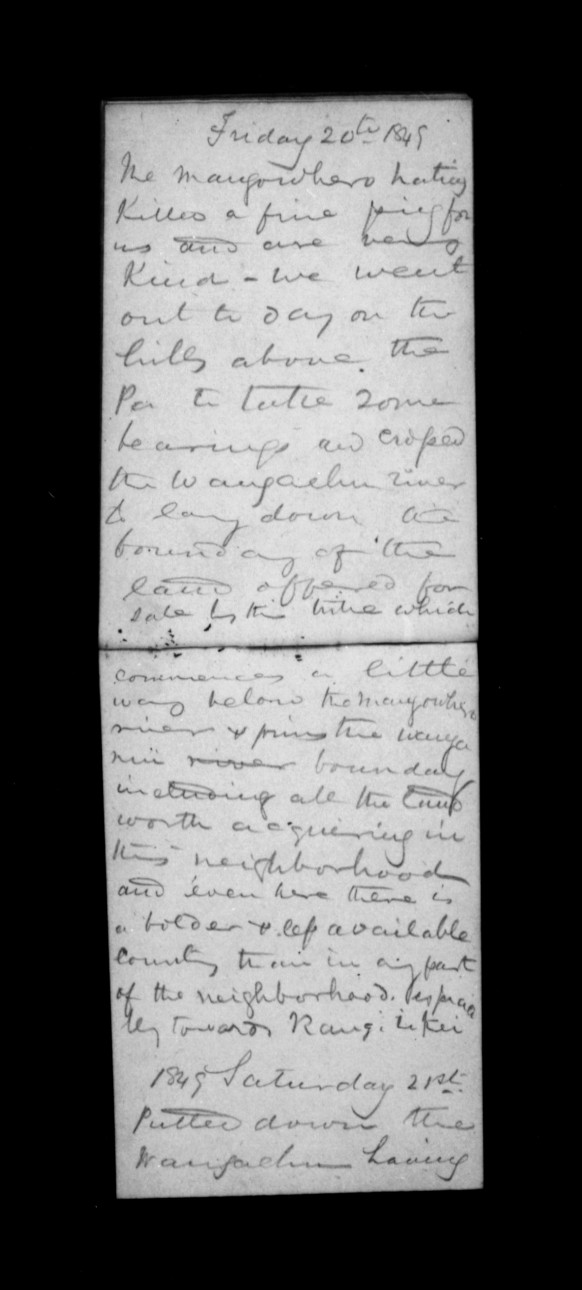 Friday 20th 1849
The Mangowhero natives
Killed a fine pig for
us and are very
Kind - we went
out to day on the
hills above. the
Pa to take some
bearings and crossed
the Wangaehu river
to lay down the
bounday of the
land offered for
sale by this tribe which
commences a little
way below the Mangowhero
river & joins the wanga
nui river bounday
including all the land
worth acquiering in
this neighborhood
and even here there is
a bolder & less available
country than in any part
of the neighborhood. Especia
lly towards Rangitikei
1849 Saturday 21st
Pulled down the
Wangaehu having